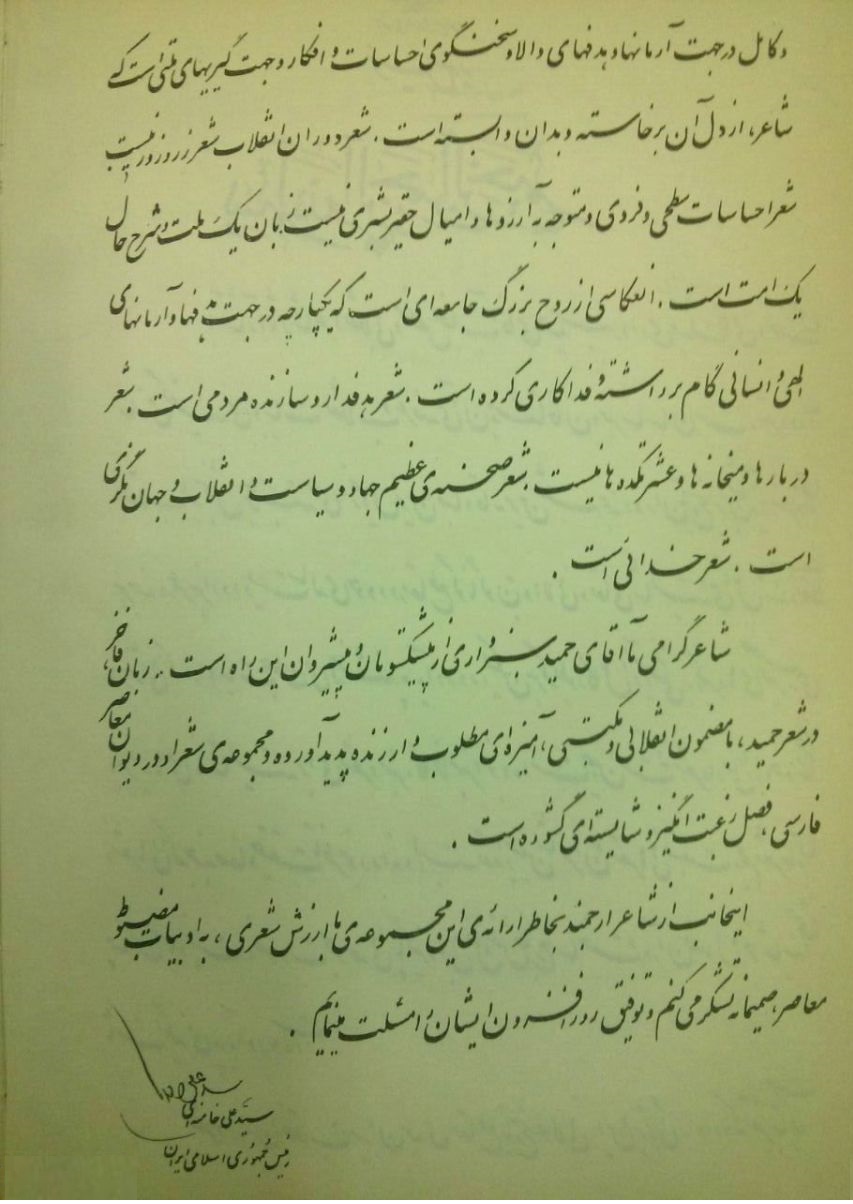 و کامل در جهت آرمانها و هدفهای والا و سخنگوی احساسات و افکار و جهت گیریهای ملتی است که
شاعر، از دل آن برخاسته و بدان وابسته است. شعر دوران انقلاب شعر زر و زور نیست
شعر احساسات سطحی و فردی و متوجه به آرزوها و امیال حقیر بشری نیست زبان یک ملت و شرح حال
یک امت است. انعکاسی از روح بزرگ جامعه ای است که یکپارچه در جهت هدفها و آرمانهای
الهی و انسانی گام برداشته و فداکاری کرده است. شعر هدفدار و سازنده مردمی است. شعر
دربارها و میخانه ها و عشرتکده ها نیست. شعر صحنه ی عظیم جهاد و سیاست و انقلاب و جهان نگری
است. شعر خدائی است.
شاعر گرامی ما آقای حمید سبزواری از پیشکسوتان و پیشروان این راه است. زبان فاخر،
در شعر حمید، با مضمون انقلابی و مکتبی، آمیزه ای مطلوب و ارزنده پدید آورده و مجموعه ی شعر او در دیوان معاصر
فارسی، فصل رغبت انگیز و شایسته ای گشوده است.
اینجانب از شاعر ارجمند بخاطر ارائه ی این مجموعه ی با ارزش شعری، به ادبیات مضبوط
معاصر، صمیمانه تشکر می کنم و توفیق روزافزون ایشان را مسئلت مینمایم.
سید علی خامنه ای
رئیس جمهوری اسلامی ایران